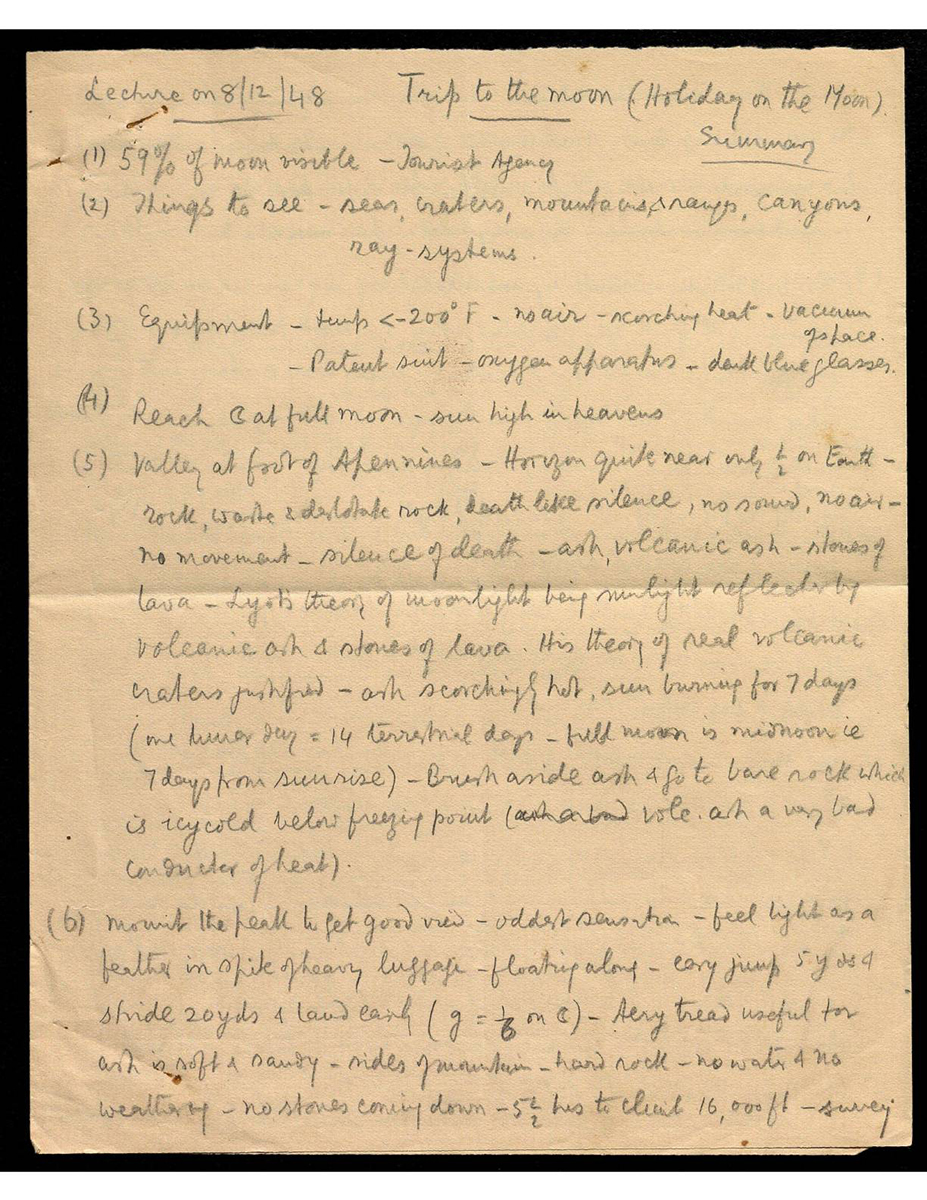 Lecture on 8/12/48 Trip to the moon (Holiday on the Moon).
Summary
(1) 59% of moon visible - Tourist Agency
(2) Things to see - seas, craters, mountains, & ranges, canyons,
ray-systems.
(3) Equipment - temp <-200°F - no air - scorching heat - vacuum
of space.
- Patent suit - oxygen apparatus - dark blue glasses.
(4) Reach ☾ at full moon - sun high in heavens
(5) Valley at foot of Apennines - Horizon quite near only ½ on Earth -
rock, waste & desolate rock, death like silence, no sound, no air -
no movement - silence of death - ash, volcanic ash - stones of
lava - Lyot's theory of moonlight being sunlight reflected by
volcanic ash & stones of lava. His theory of real volcanic
craters justified - ash scorchingly hot, sun burning for 7 days
(one lunar day = 14 terrestrial days - full moon is midnoon ie
7 days from sunrise) - Brush aside ash & go to bare rock which
is icy cold below freezing point (ash a bad volc. ash a very bad
conductor of heat).
(6) Mount the peak to get good view - oddest sensation - feel light as a
feather in spite of heavy luggage - floating along - easy jump 5 yds &
stride 20 yds & land easily (g = 1/6 on ☾) - Aery tread useful for
ash is soft & sandy - sides of mountain - hard rock - no water & no
weathering - no stones coming down - 5½ hrs to climb 16,000 ft - survey